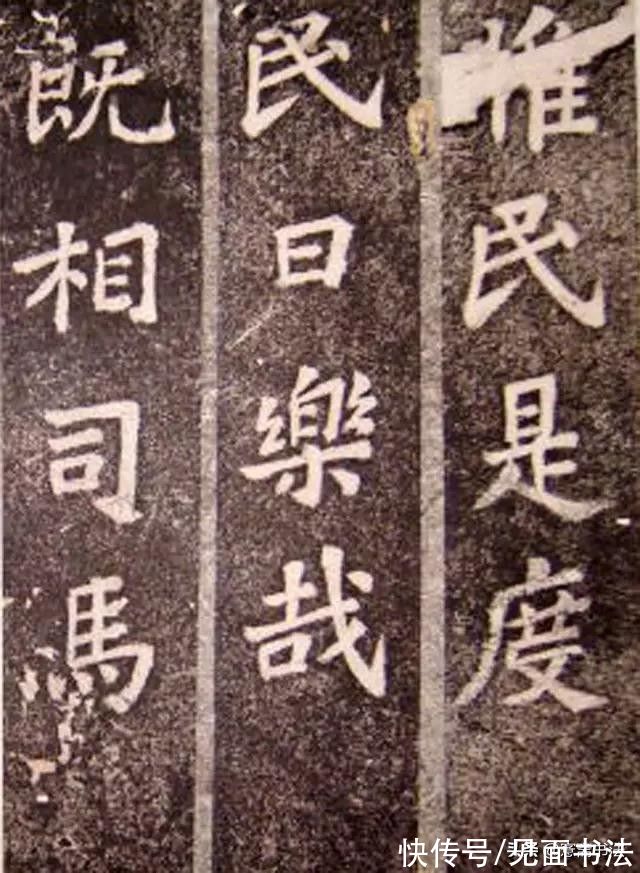 惟民是度
民曰樂哉
既相司馬
快传号/见面书法